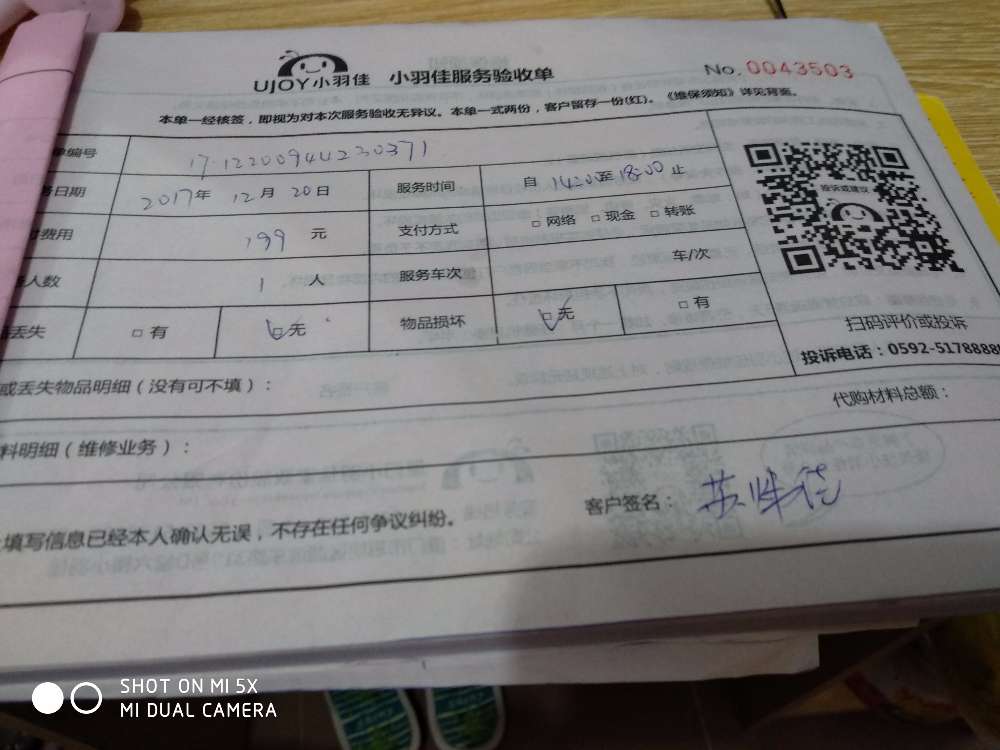 UJOY小羽佳 小羽佳服务验收单 No.0043503
本单一经核签，即视为对本次服务验收无异议。本单一式两份，客户留存一份(红)。《维保须知》详见背面。
单编号 1712200944230371
务日期 2017年 12月 20日 服务时间 自 14:00至18:00止
费用 199 元 支付方式 □网络 □现金 □转账
人数 1 人 服务车次 车/次
丢失 □有 □无 物品损坏 □无 □有
投诉或建议
扫码评价或投诉
投诉电话：0592-5178888
或丢失物品明细（没有可不填）：
代购材料总额：
料明细（维修业务）：
填写信息已经本人确认无误，不存在任何争议纠纷。
客户签名：苏
SHOT ON MI 5X
MI DUAL CAMERA